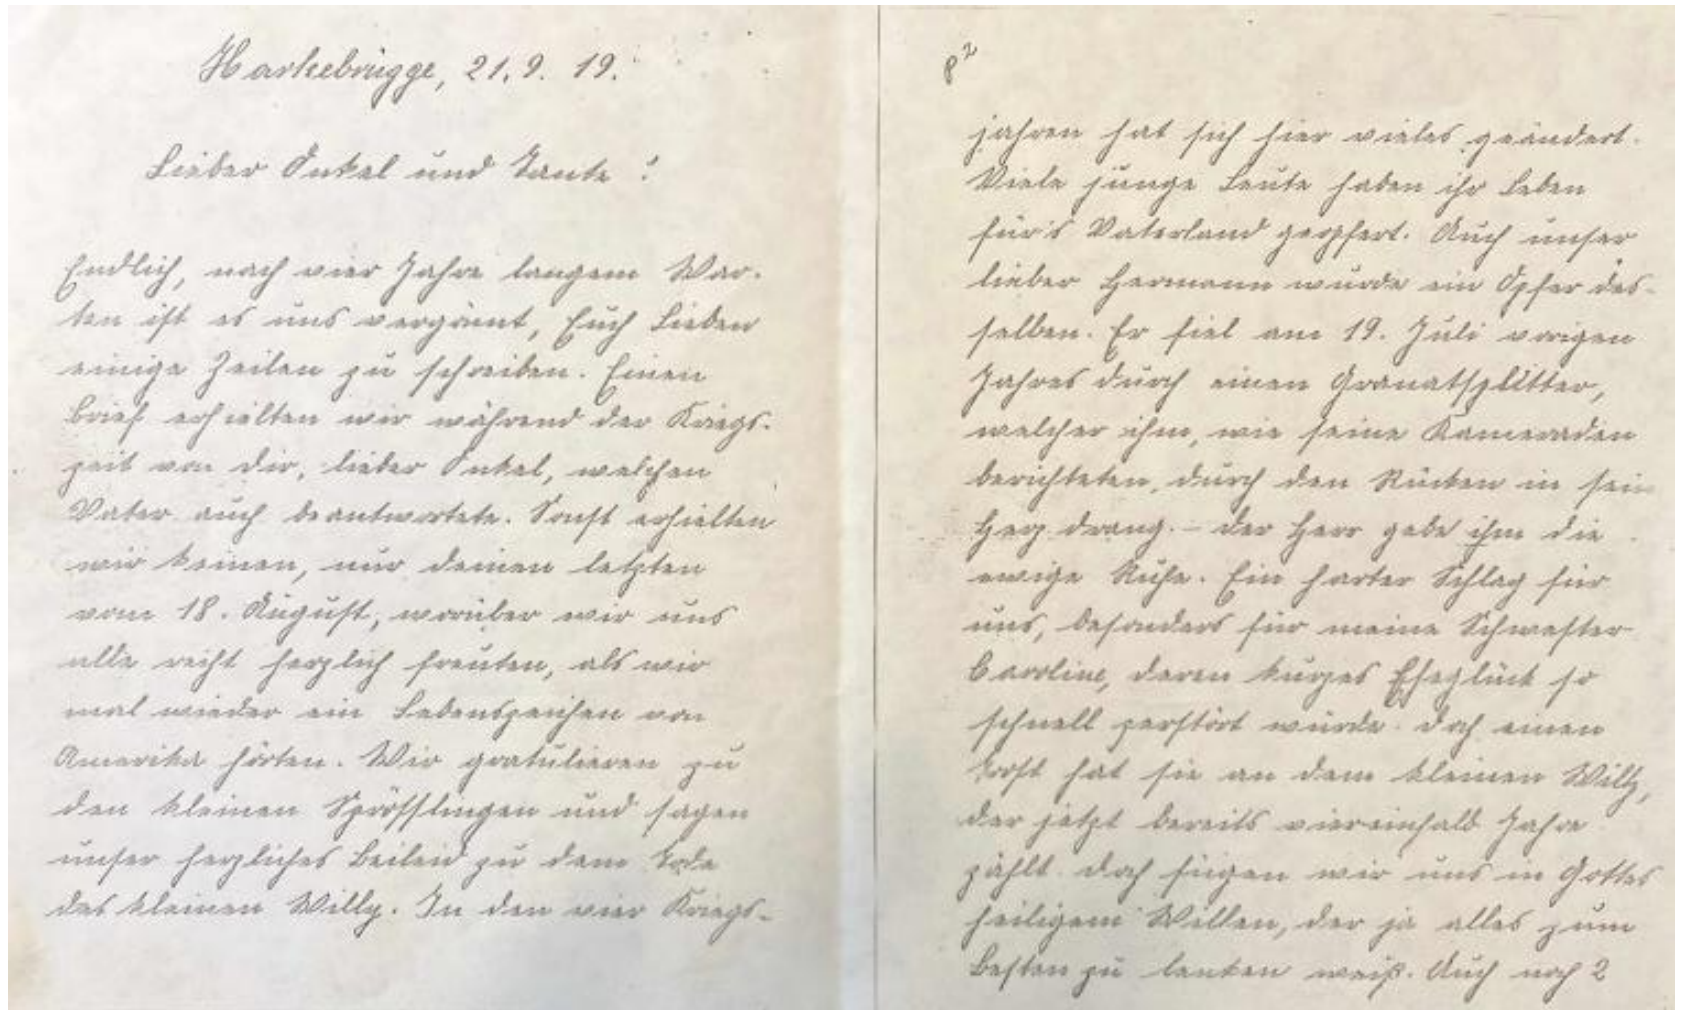 Harkebrügge, 21.9. 19.
Lieber Onkel und Tante!
Endlich, nach vier Jahre langem War-
ten ist es uns vergönnt, Euch Lieben
einige Zeilen zu schreiben. Einen
Brief erhielten wir während der Kriegs-
zeit von dir, lieber Onkel, welchen
Vater auch beantwortete. Sonst erhielten
wir keinen, nur deinen letzten
vom 18. August, worüber wir uns
alle recht herzlich freuten, als wir
mal wieder ein Lebenszeichen von
Amerika hörten. Wir gratulieren zu
den kleinen Sprösslingen und sagen
unser herzliches Beileid zu dem Tode
des kleinen Willy. In den vier Kriegs-
p 2
jahren hat sich hier vieles geändert.
Viele junge Leute haben ihr Leben
für's Vaterland geopfert. Auch unser
lieber Hermann wurde ein Opfer des-
selben. Er fiel am 19. Juli vorigen
Jahres durch einen Granatsplitter,
welcher ihm, wie seine Kameraden
berichteten, durch den Rücken in sein
Herz drang. – der Herr gebe ihm die
ewige Ruhe. Ein harter Schlag für
uns, besonders für meine Schwester
Caroline, deren kurzes Eheglück so
schnell zerstört wurde. Doch einen
Trost hat sie an dem kleinen Willy,
der jetzt bereits viereinhalb Jahre
zählt. doch fügen wir uns in Gottes
heiligem Willen, der ja alles zum
Besten zu lenken weiß. Auch noch 2